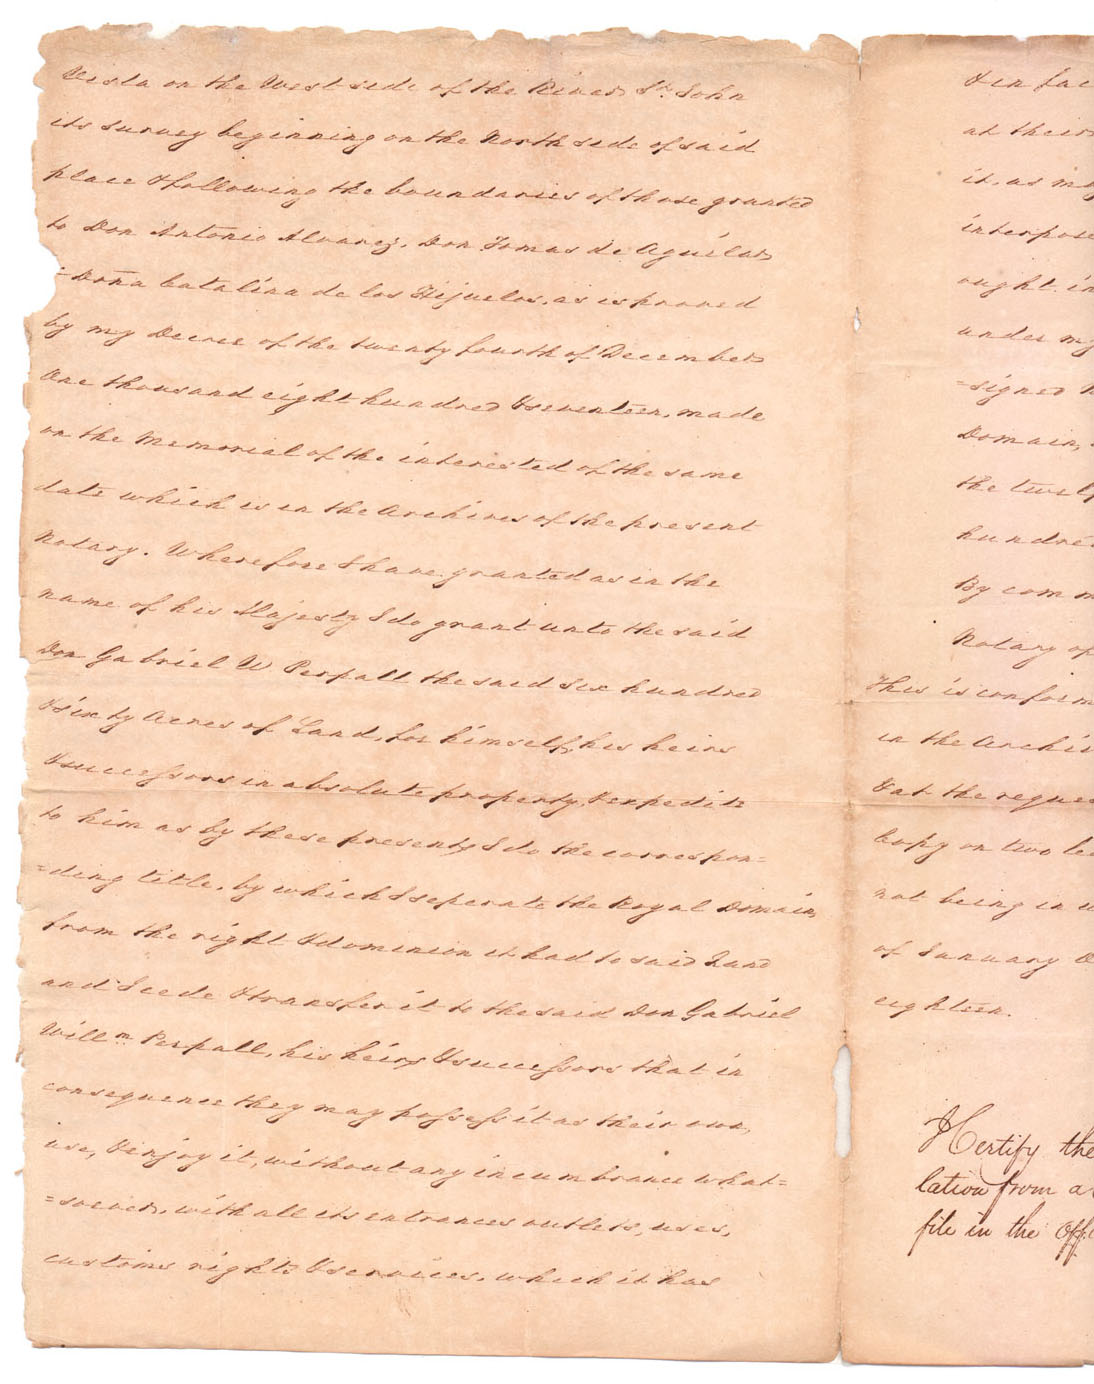 Vista on the West side of the River St. John
its survey beginning on the North side of said
place & following the boundaries of those granted
to Don Antonio Alvarez, Don Tomas de Aguilar
=Doña Catalina de los Hijuelos, as is proved
by my Decree of the twenty fourth of December
One thousand eight hundred & seventeen, made
on the Memorial of the interested of the same
date which is in the Archives of the present
Notary. Wherefore I have granted as in the
name of his Majesty I do grant unto the said
Don Gabriel W Perpall the said six hundred
& sixty Acres of Land, for himself, his heirs
& successors in absolute property, & expedite
to him as by these presents I do the correspon=
=ding title, by which I seperate the Royal Domain,
from the right & dominion it had to said Land
and I cede & transfer it to the said Don Gabriel
Willm Perpall, his heirs & successors that in
consequence they may possess it as their own,
use, & enjoy it, without any incumbrance what=
=soever, with all its entrances outlets, uses,
customs rights & services, which it has
& in fa
at their
it, as may
interpose
ought in
under my
=signed
Domain,
the twel
hundre
By comm
Notary of
This is conform
in the Archi
& at the reque
Copy on two le
not being in u
of January O
eighteen.
I Certify the
lation from a
file in the Offi